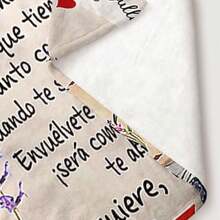 que tien
anto co
uando te s
Envuélvete
¡será com
te ab
quiere,